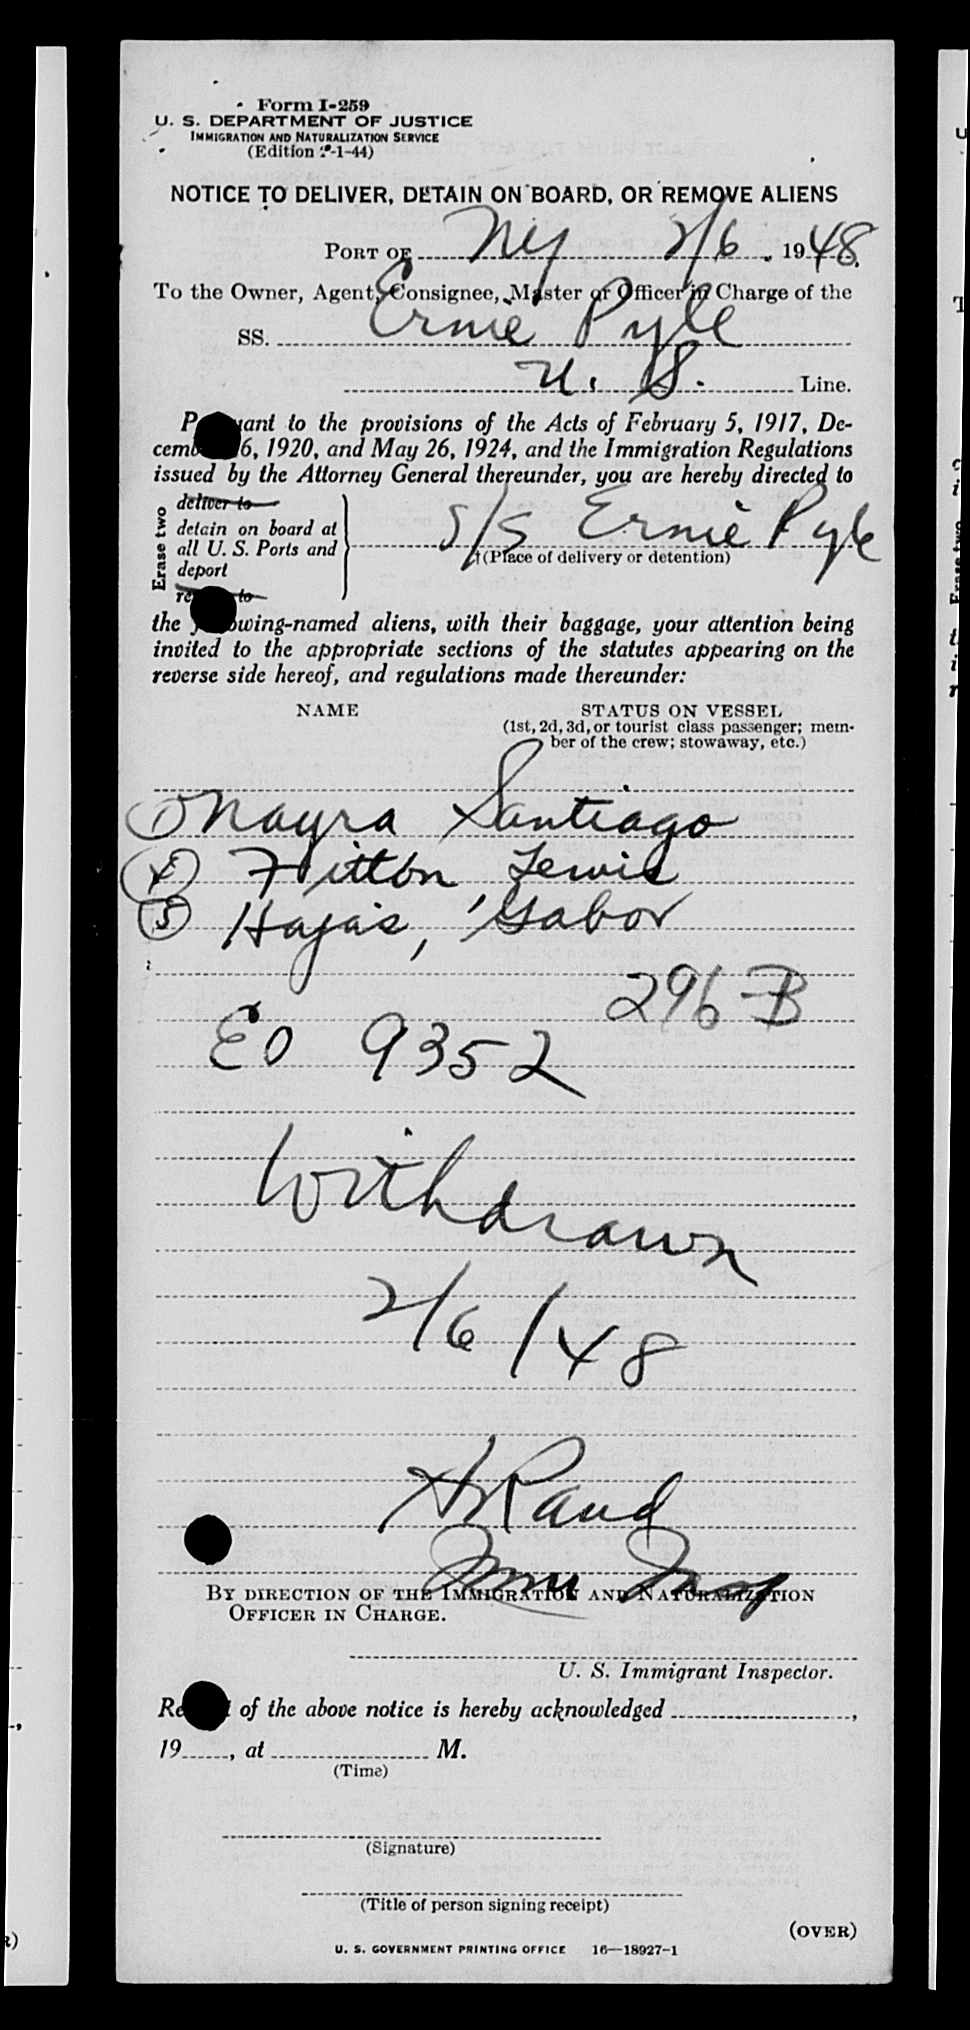 Form I-259
U. S. DEPARTMENT OF JUSTICE
IMMIGRATION AND NATURALIZATION SERVICE
(Edition -1-44)
NOTICE TO DELIVER, DETAIN ON BOARD, OR REMOVE ALIENS
PORT OF NY 2/6, 1948.
To the Owner, Agent, Consignee, Master or Officer in Charge of the
SS. Ernie Pyle
U. S. Line.
P uant to the provisions of the Acts of February 5, 1917, De-
cem 6, 1920, and May 26, 1924, and the Immigration Regulations
issued by the Attorney General thereunder, you are hereby directed to
Erase two
deliver to
detain on board at
all U. S. Ports and
deport
re to
S/S Ernie Pyle
†(Place of delivery or detention)
the owing-named aliens, with their baggage, your attention being
invited to the appropriate sections of the statutes appearing on the
reverse side hereof, and regulations made thereunder:
NAME STATUS ON VESSEL
(1st, 2d, 3d, or tourist class passenger; mem-
ber of the crew; stowaway, etc.)
① Nayra Santiago
④ Fitton Lewis
⑤ Hajas, Gabor
296-B
EO 9352
Withdrawn
2/6/48
HRand
Imm Insp
BY DIRECTION OF THE IMMIGRATION AND NATURALIZATION
OFFICER IN CHARGE.
U. S. Immigrant Inspector.
Re t of the above notice is hereby acknowledged ,
19 , at M.
(Time)
(Signature)
(Title of person signing receipt)
(OVER)
U. S. GOVERNMENT PRINTING OFFICE 16—18927-1